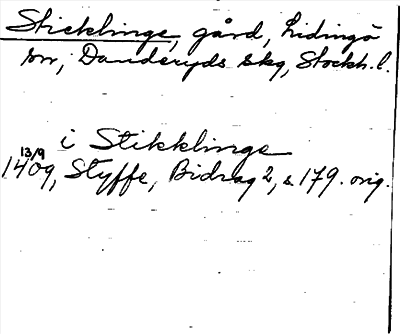 Sticklinge, gård, Lidingö
sn, Danderyds skg, Stockh. l.
i Stikklinge
13/9
1409, Styffe, Bidrag 2, s. 179. orig.